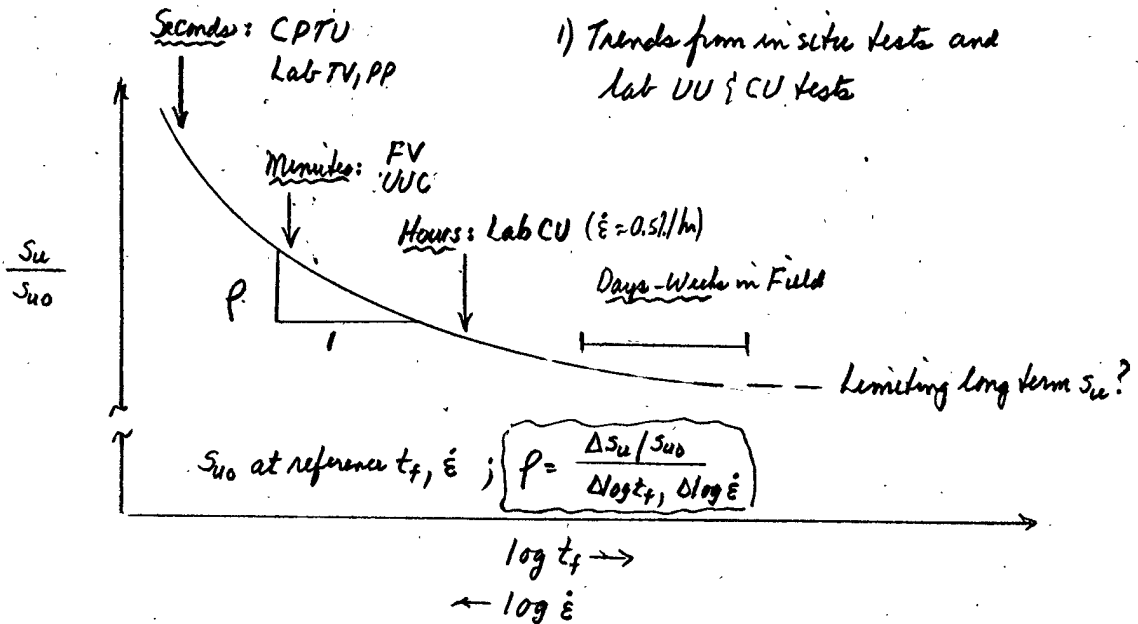 Seconds: CPTU
Lab TV, PP
1) Trends from in situ tests and
lab UU & CU tests
Minutes: FV
UUC
Hours: Lab CU (ε̇ ≈ 0.5%/hr)
Days-Weeks in Field
su
suo
ρ
1
Limiting long term su?
suo at reference tf, ε̇ ; ρ = Δsu/suo
Δlog tf, Δlog ε̇
log tf →
← log ε̇